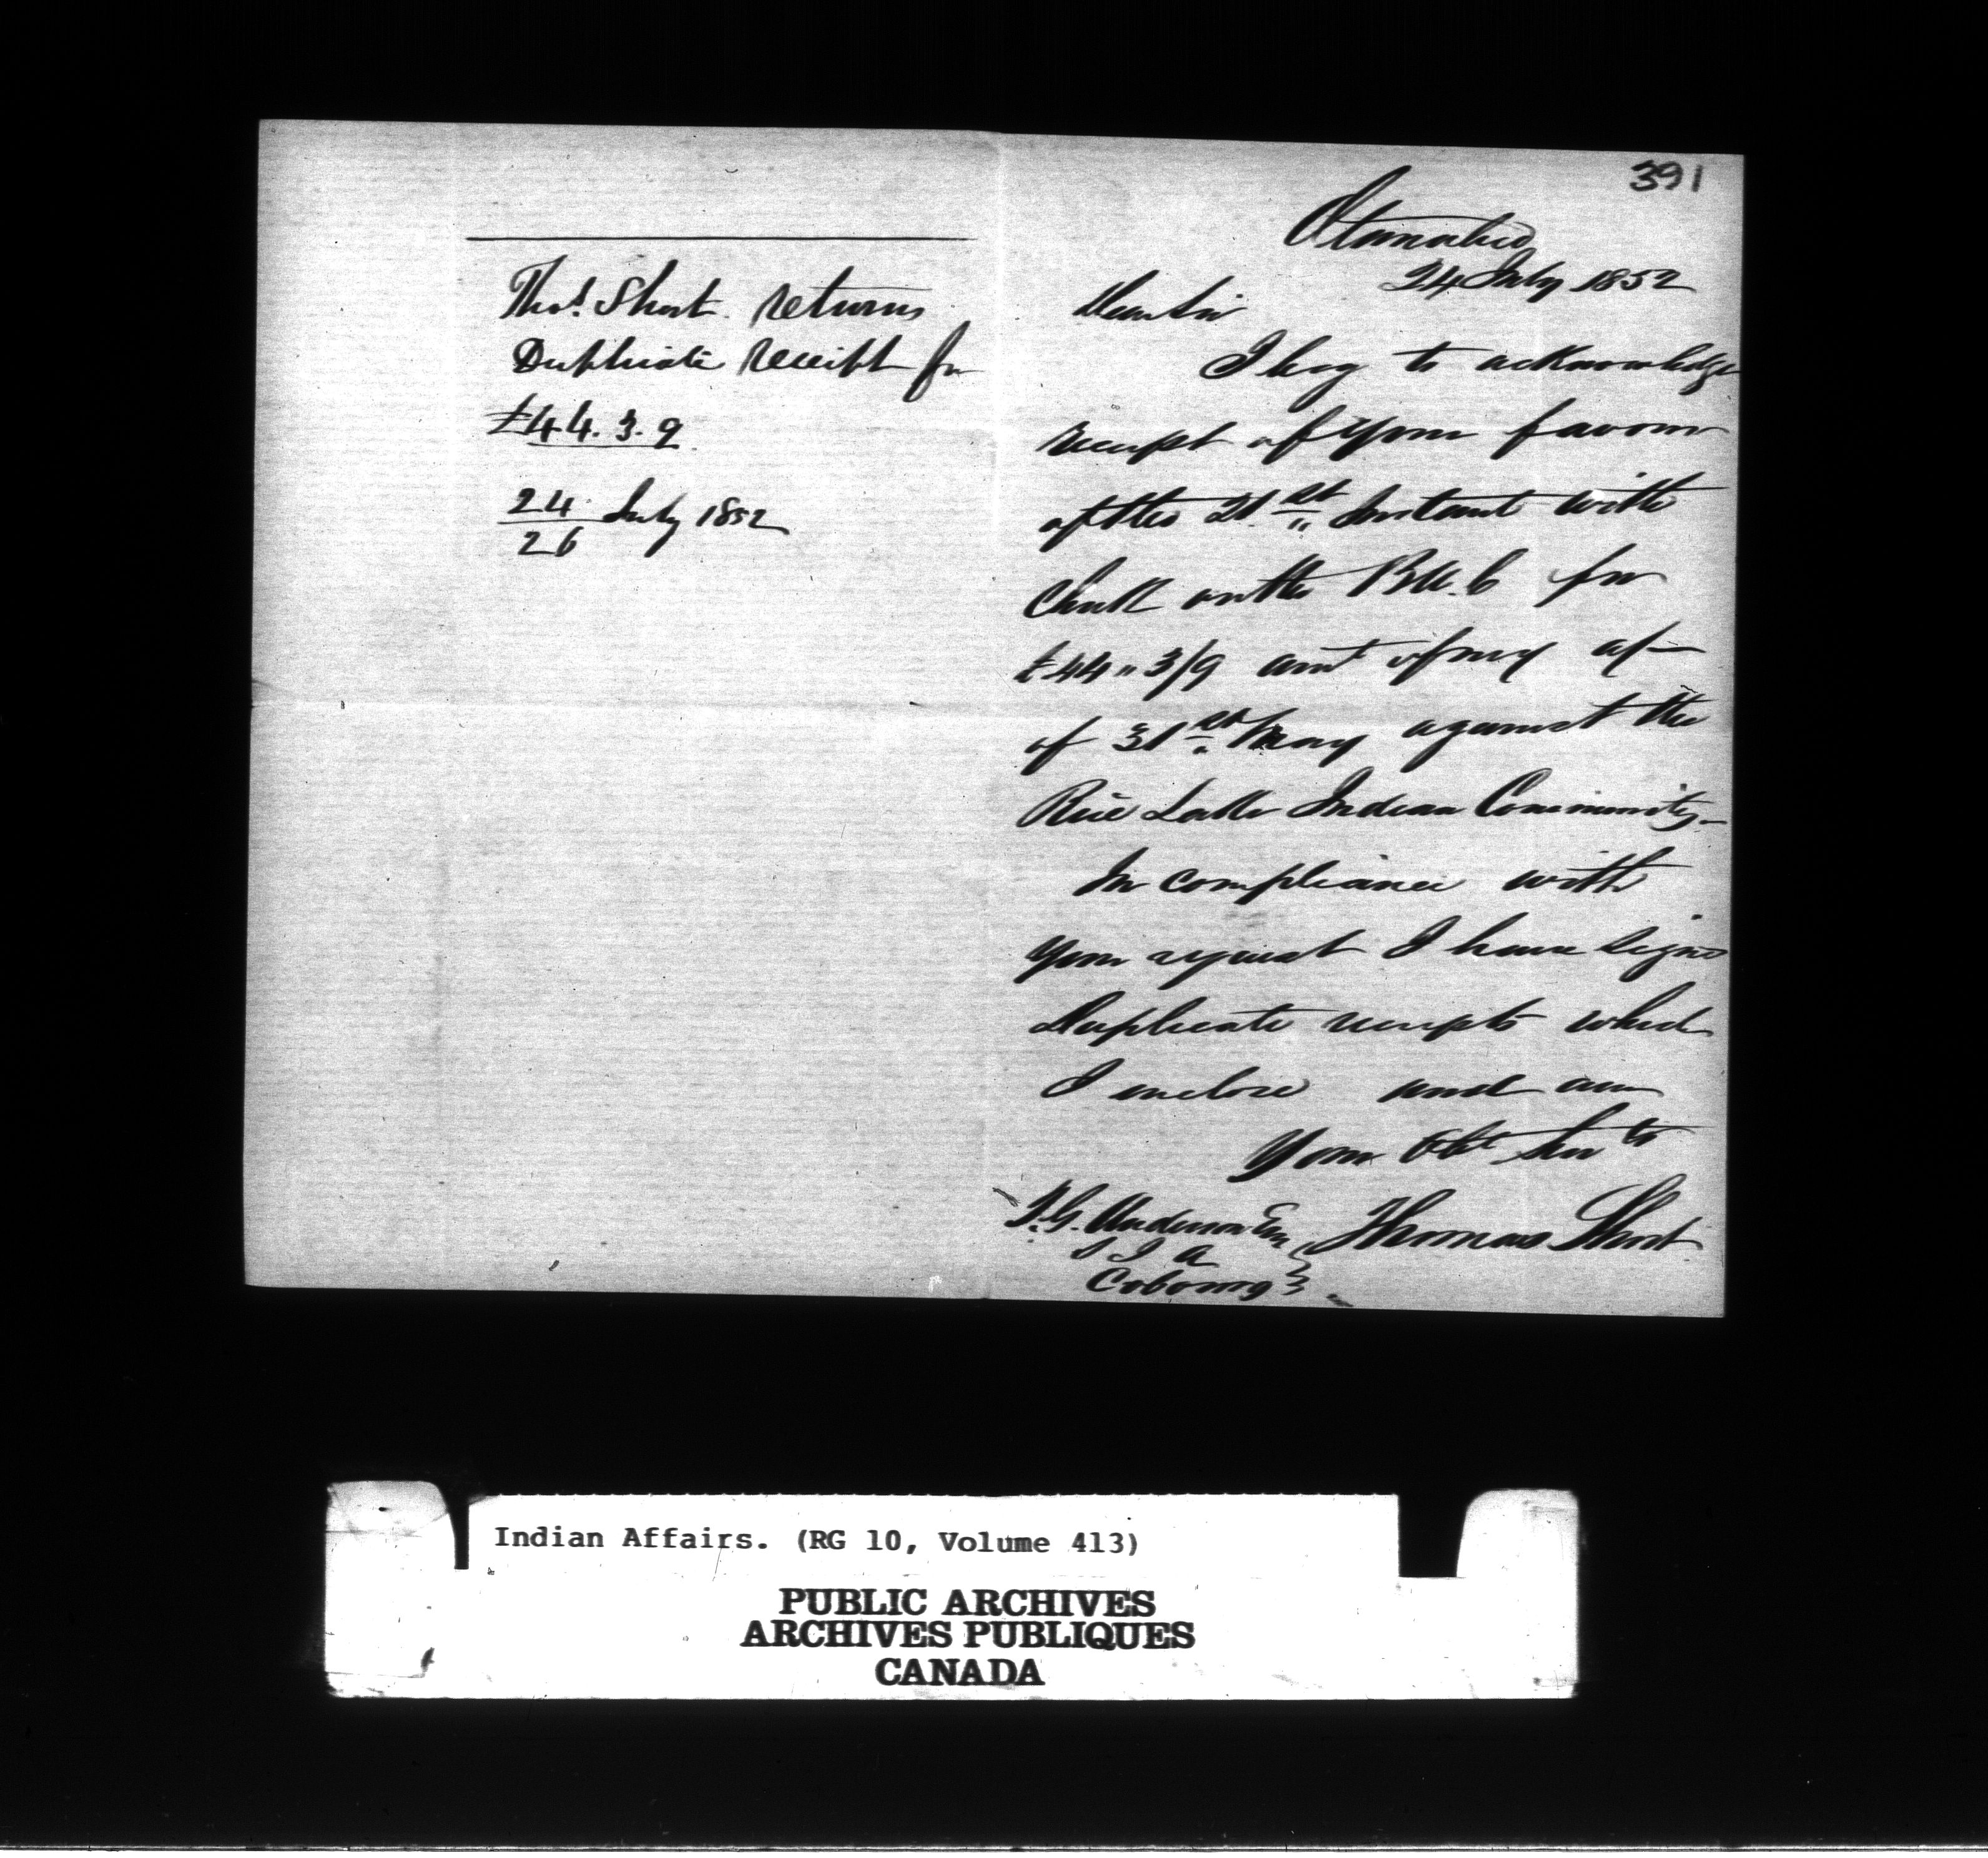 Thos. Short returns
Duplicate receipt for
£44. 3. 9
24 July 1852
26
391
Otanabee
24 July 1852
Dear Sir
I beg to acknowledge
receipt of your favour
of the 21st Instant with
Check on the B U. C for
£44 " 3/9 amt of my a/-
of 31st May against the
Rice Lake Indian Community-
In compliance with
your request I have signd
Duplicate receipts which
I enclose and am
Your Obt Servt
T. G. Anderson Esq } Thomas Short
S I A
Cobourg
Indian Affairs. (RG 10, Volume 413)
PUBLIC ARCHIVES
ARCHIVES PUBLIQUES
CANADA